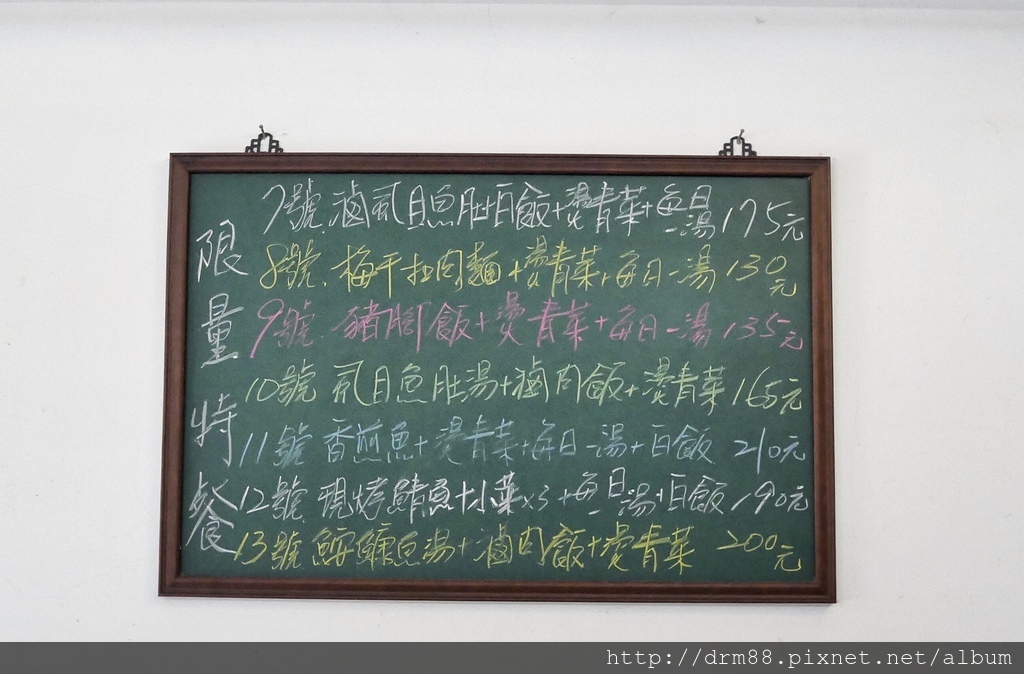 限量特餐
7號.滷虱目魚肚+白飯+燙青菜+每日一湯175元
8號.梅干扣肉麵+燙青菜+每日一湯130元
9號.豬腳飯+燙青菜+每日一湯135元
10號虱目魚肚湯+滷肉飯+燙青菜165元
11號香煎魚+燙青菜+每日一湯+白飯 210元
12號.現烤鯖魚+小菜x3+每日一湯+白飯190元
13號鮟鱇魚湯+滷肉飯+燙青菜 200元
http://drm88.pixnet.net/album